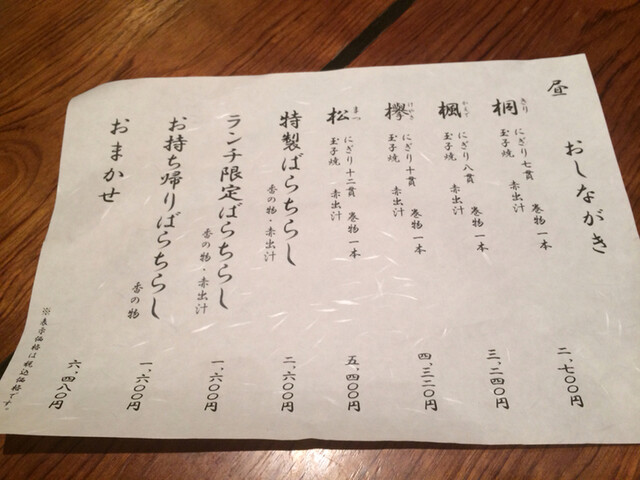 昼
おしながき
桐 きり
にぎり七貫 巻物一本
玉子焼 赤出汁
二、七〇〇円
楓 かえで
にぎり八貫 巻物一本
玉子焼 赤出汁
三、二四〇円
欅 けやき
にぎり十貫 巻物一本
玉子焼 赤出汁
四、三二〇円
松 まつ
にぎり十二貫 巻物一本
玉子焼 赤出汁
五、四〇〇円
特製ばらちらし
香の物・赤出汁
二、六〇〇円
ランチ限定ばらちらし
香の物・赤出汁
一、六〇〇円
お持ち帰りばらちらし
香の物
一、六〇〇円
おまかせ
六、四八〇円
※表示価格は税込価格です。